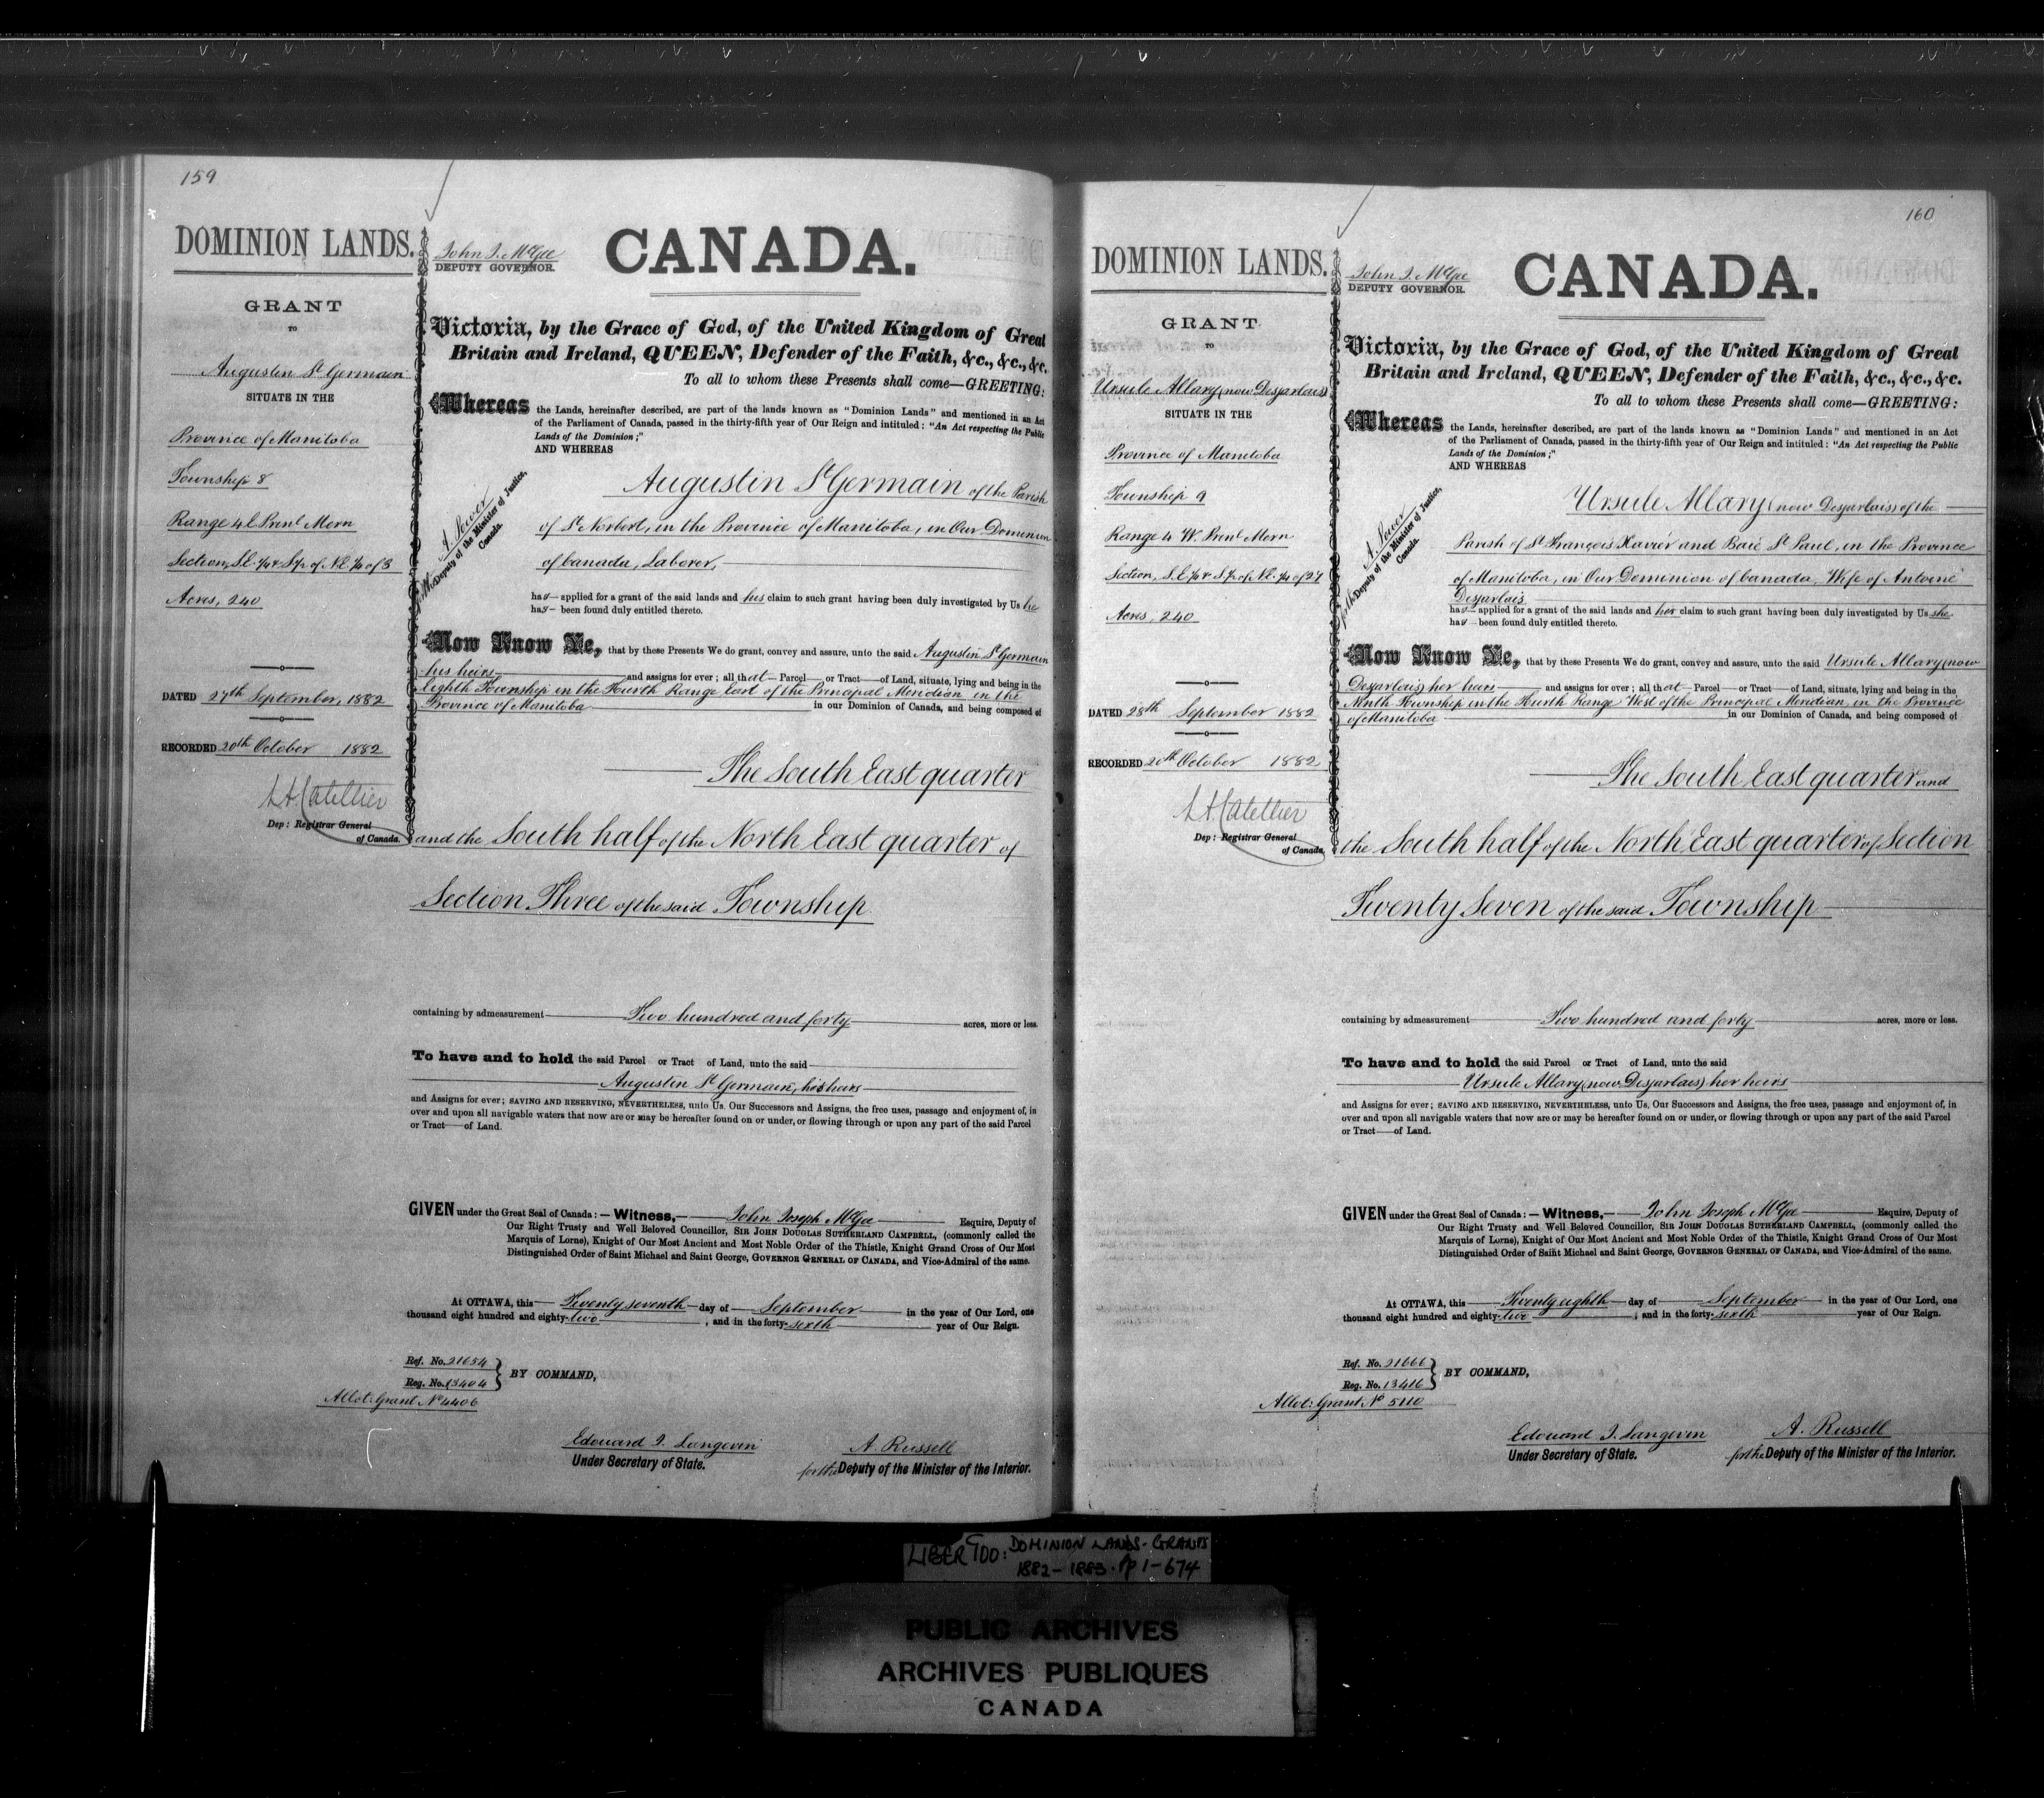 159
DOMINION LANDS.
GRANT
TO
Augustin St Germain
SITUATE IN THE
Province of Manitoba
Township 8
Range 4 E Prinl Mern
Section, S.E. 1/4 & S 1/2 of N.E. 1/4 of 3
Acres, 240
DATED 27th September, 1882
RECORDED 20th October 1882
L.A. Catellier
Dep: Registrar General
of Canada.
John J. McGee
DEPUTY GOVERNOR.
CANADA.
Victoria, by the Grace of God, of the United Kingdom of Great
Britain and Ireland, QUEEN, Defender of the Faith, &c., &c., &c.
To all to whom these Presents shall come—GREETING:
Whereas the Lands, hereinafter described, are part of the lands known as "Dominion Lands" and mentioned in an Act
of the Parliament of Canada, passed in the thirty-fifth year of Our Reign and intituled: "An Act respecting the Public
Lands of the Dominion;"
AND WHEREAS
A. Power
Deputy of the Minister of Justice,
Canada.
Augustin St Germain of the Parish
of St Norbert, in the Province of Manitoba, in Our Dominion
of Canada, Laborer,
has applied for a grant of the said lands and his claim to such grant having been duly investigated by Us he
has been found duly entitled thereto.
Now Know Ye, that by these Presents We do grant, convey and assure, unto the said Augustin St Germain
his heirs and assigns for ever; all that Parcel or Tract of Land, situate, lying and being in the
Eighth Township in the Fourth Range East of the Principal Meridian in the
Province of Manitoba in our Dominion of Canada, and being composed of
The South East quarter
and the South half of the North East quarter of
Section Three of the said Township
containing by admeasurement Two hundred and forty acres, more or less.
To have and to hold the said Parcel or Tract of Land, unto the said
Augustin St Germain, his heirs
and Assigns for ever; SAVING AND RESERVING, NEVERTHELESS, unto Us, Our Successors and Assigns, the free uses, passage and enjoyment of, in
over and upon all navigable waters that now are or may be hereafter found on or under, or flowing through or upon any part of the said Parcel
or Tract of Land.
GIVEN under the Great Seal of Canada:—Witness, John Joseph McGee Esquire, Deputy of
Our Right Trusty and Well Beloved Councillor, SIR JOHN DOUGLAS SUTHERLAND CAMPBELL, (commonly called the
Marquis of Lorne), Knight of Our Most Ancient and Most Noble Order of the Thistle, Knight Grand Cross of Our Most
Distinguished Order of Saint Michael and Saint George, GOVERNOR GENERAL OF CANADA, and Vice-Admiral of the same.
At OTTAWA, this Twenty seventh day of September in the year of Our Lord, one
thousand eight hundred and eighty-two, and in the forty-sixth year of Our Reign.
Ref. No. 21654
Reg. No. 13404
BY COMMAND,
Allot: Grant No 4406
Edouard J. Langevin
Under Secretary of State.
A. Russell
for the Deputy of the Minister of the Interior.
160
DOMINION LANDS.
GRANT
TO
Ursule Allary (now Desjarlais)
SITUATE IN THE
Province of Manitoba
Township 9
Range 4 W. Prinl Mern
Section, S.E 1/4 & S 1/2 of N.E. 1/4 of 27
Acres, 240
DATED 28th September 1882
RECORDED 20th October 1882
L.A. Catellier
Dep: Registrar General
of Canada.
John J. McGee
DEPUTY GOVERNOR.
CANADA.
Victoria, by the Grace of God, of the United Kingdom of Great
Britain and Ireland, QUEEN, Defender of the Faith, &c., &c., &c.
To all to whom these Presents shall come—GREETING:
Whereas the Lands, hereinafter described, are part of the lands known as "Dominion Lands" and mentioned in an Act
of the Parliament of Canada, passed in the thirty-fifth year of Our Reign and intituled: "An Act respecting the Public
Lands of the Dominion;"
AND WHEREAS
A. Power
for the Deputy of the Minister of Justice,
Canada.
Ursule Allary (now Desjarlais) of the
Parish of St François Xavier and Baie St Paul, in the Province
of Manitoba, in Our Dominion of Canada, Wife of Antoine
Desjarlais
has applied for a grant of the said lands and her claim to such grant having been duly investigated by Us she
has been found duly entitled thereto.
Now Know Ye, that by these Presents We do grant, convey and assure, unto the said Ursule Allary (now
Desjarlais) her heirs and assigns for ever; all that Parcel or Tract of Land, situate, lying and being in the
Ninth Township in the Fourth Range West of the Principal Meridian, in the Province
of Manitoba in our Dominion of Canada, and being composed of
The South East quarter and
the South half of the North East quarter of Section
Twenty Seven of the said Township
containing by admeasurement Two hundred and forty acres, more or less.
To have and to hold the said Parcel or Tract of Land, unto the said
Ursule Allary (now Desjarlais) her heirs
and Assigns for ever; SAVING AND RESERVING, NEVERTHELESS, unto Us, Our Successors and Assigns, the free uses, passage and enjoyment of, in
over and upon all navigable waters that now are or may be hereafter found on or under, or flowing through or upon any part of the said Parcel
or Tract of Land.
GIVEN under the Great Seal of Canada:—Witness, John Joseph McGee Esquire, Deputy of
Our Right Trusty and Well Beloved Councillor, SIR JOHN DOUGLAS SUTHERLAND CAMPBELL, (commonly called the
Marquis of Lorne), Knight of Our Most Ancient and Most Noble Order of the Thistle, Knight Grand Cross of Our Most
Distinguished Order of Saint Michael and Saint George, GOVERNOR GENERAL OF CANADA, and Vice-Admiral of the same.
At OTTAWA, this Twenty eighth day of September in the year of Our Lord, one
thousand eight hundred and eighty-two; and in the forty-sixth year of Our Reign.
Ref. No. 21666
Reg. No. 13416
BY COMMAND,
Allot: Grant No 5110
Edouard J. Langevin
Under Secretary of State.
A. Russell
for the Deputy of the Minister of the Interior.
LIBER 900: DOMINION LANDS-GRANTS
1882-1883. pp 1-674
PUBLIC ARCHIVES
ARCHIVES PUBLIQUES
CANADA